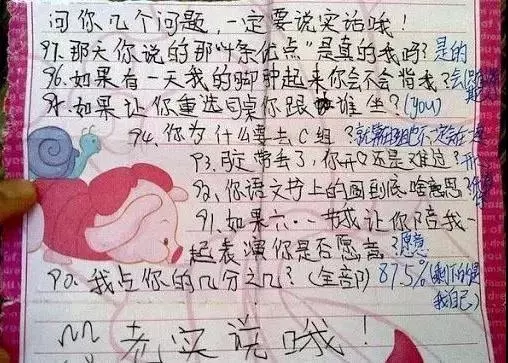 问你几个问题，一定要说实话哦！
97.那天你说的那"4条优点"是真的我吗？是的
96.如果有一天我的脚肿起来你会不会背我？会
95.如果让你重选同桌你跟谁坐？(you)
94.你为什么要去C组？就算
93.胶带丢了，你开心还是难过？开
92.你语文书上的圈到底啥意思
91.如果六·一节我让你陪我一
起表演你是否愿意？愿意
90.我占你的几分之几？(全部) 87.5% (剩下的是
我自己)
老实说哦！